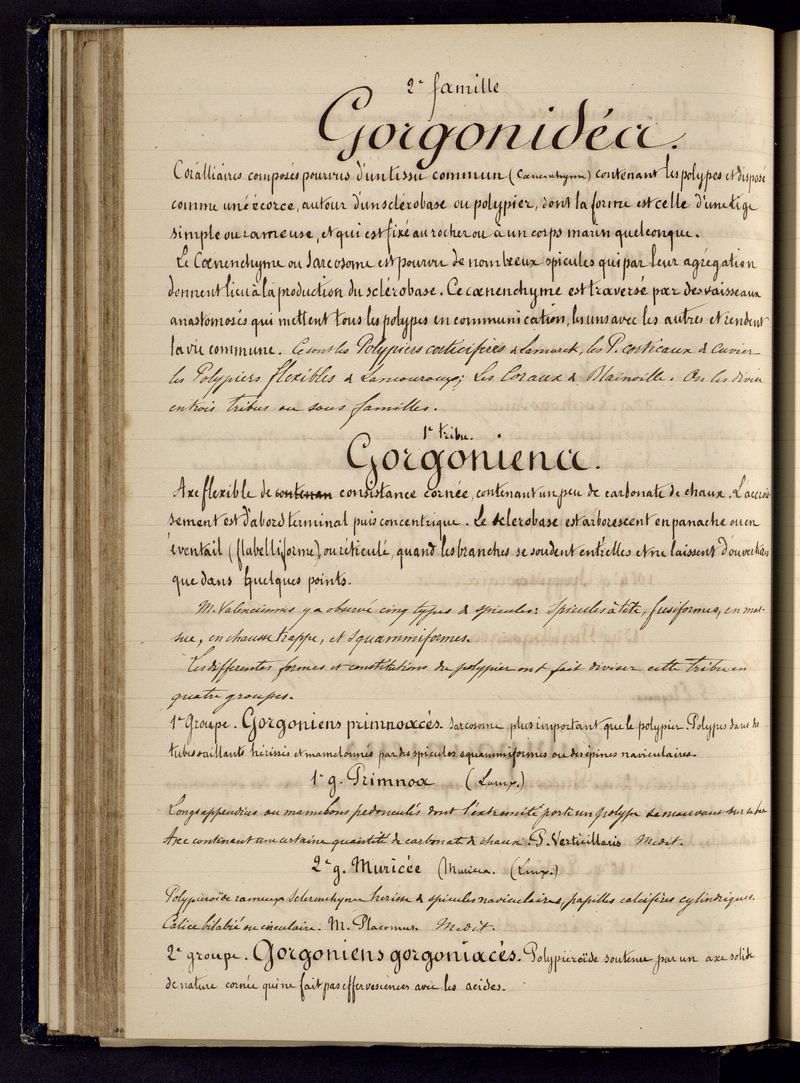 2e famille
Gorgonidéa.
Coralliaires composés pourvus d'un tissu commun (Cœnenchyme) contenant les polypes et disposé
comme une écorce, autour d'un sclérobase ou polypier, dont la forme est celle d'une tige
simple ou rameuse, et qui est fixé au rocher ou à un corps marin quelconque.
Le Cœnenchyme ou Sarcosome est pourvu de nombreux spicules qui par leur agrégation
donnent lieu à la production du sclérobase. Ce cœnenchyme est traversé par des vaisseaux
anastomosés qui mettent tous les polypes en communication, les uns avec les autres et rendent
la vie commune. Ce sont les Polypiers corticifères d Lamarck, les P. corticaux d Cuvier
les Polypiers flexibles d Lamouroux; Les Coraux d Blainville. On les divise
en trois tribus ou sous familles.
1e tribu.
Gorgoniena.
Axe flexible de contenan consistance cornée, contenant un peu de carbonate de chaux. L'accrois
sement est d'abord terminal puis concentrique. Le sclerobase est arborescent en panache ou en
éventail (flabelliforme) ou réticulé, quand les branches se soudent entr'elles et ne laissent d'ouvertures
que dans quelques points.
M. Valenciennes y a observé cinq types d spicules: spicules à tête, fusiformes, en mas-
sue, en chausse trappe, et squammiformes.
Les differentes formes et constitutions du polypier ont fait diviser cette tribu en
quatre groupes.
1er Groupe. Gorgoniens primnoacés. Sarcosome plus important que le polypier. Polypes dans des
tubes saillants hérissés et mamelonnés par des spicules squammiformes ou des épines naviculaires.
1e g. Primnoa (Lamx.)
Longs appendices ou mamelons pedonculés dont l'extremité porte un polype se mouvant sur
Axe contenant une certaine quantité d carbonate d chaux. P. Verticillaris Medit.
2e g. Muricée (Muricea. (Lmx.)
Polypieroïde rameux Sclerenchyme herissé d spicules naviculaires, papilles calcifères cylindriques.
Calice bilabié ou circulaire. M. Placomus. Medit.
2e groupe. Gorgoniens gorgoniacés. Polypiéroïde soutenu par un axe solide
de nature cornée qui ne fait pas effervescences avec les acides.